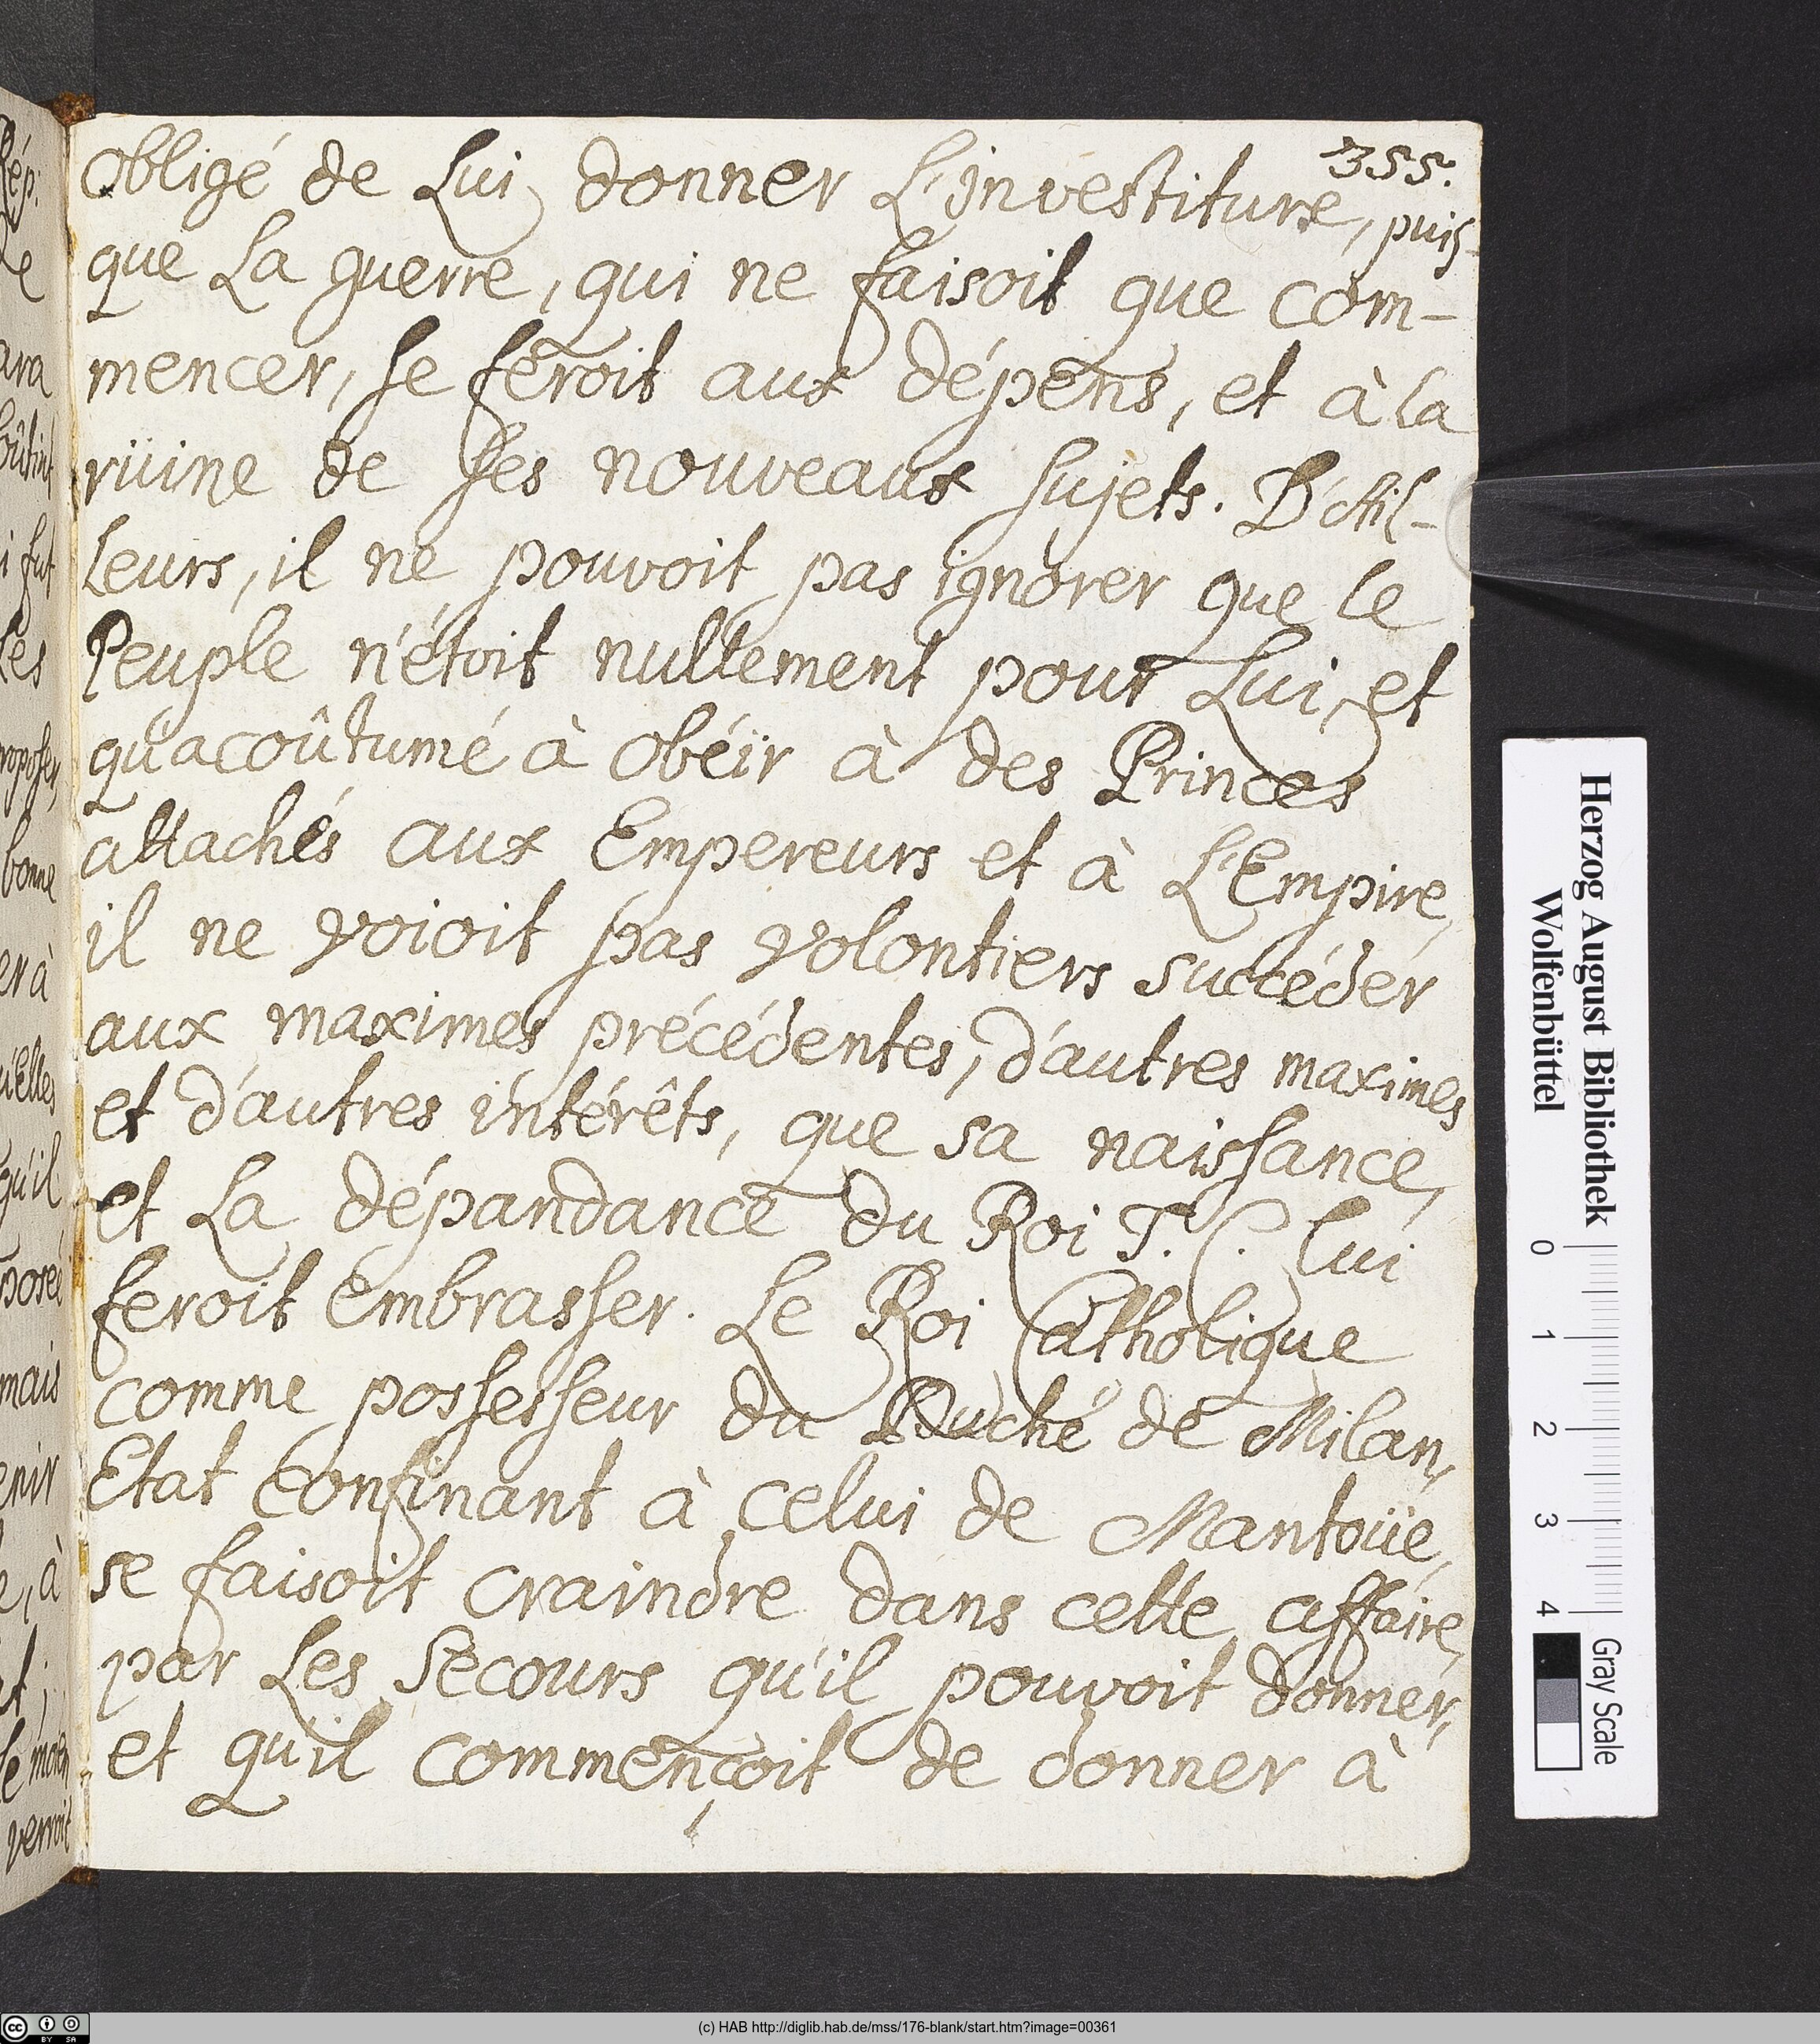 355.
obligé de Lui donner L'investiture, puis-
que La guerre, qui ne faisoit que com-
mencer, se feroit aux dépens, et à la
rüine de ses nouveaux sujets. D'Ail-
leurs, il ne pouvoit pas ignorer que le
Peuple n'étoit nullement pour Lui, et
qu'acoûtumé à obéïr à des Princes
attachés aux Empereurs et à L'Empire,
il ne voioit pas volontiers succéder
aux maximes précédentes, d'autres maximes
et d'autres intérêts, que sa naissance,
et La dépandance du Roi T. C. lui
feroit embrasser. Le Roi Catholique
comme possesseur du Duché de Milan,
Etat confinant à celui de Mantoüe,
se faisoit craindre dans cette affaire,
par Les secours qu'il pouvoit donner,
et qu'il commençoit de donner à
Rép.
de
ara
i fut
Les
proposer,
bonne
er à
qu'Elles
qu'il
posée
mais
enir
e, à
verroit
Herzog August Bibliothek
Wolfenbüttel
0 1 2 3 4
Gray Scale
(c) HAB http://diglib.hab.de/mss/176-blank/start.htm?image=00361
cc BY SA